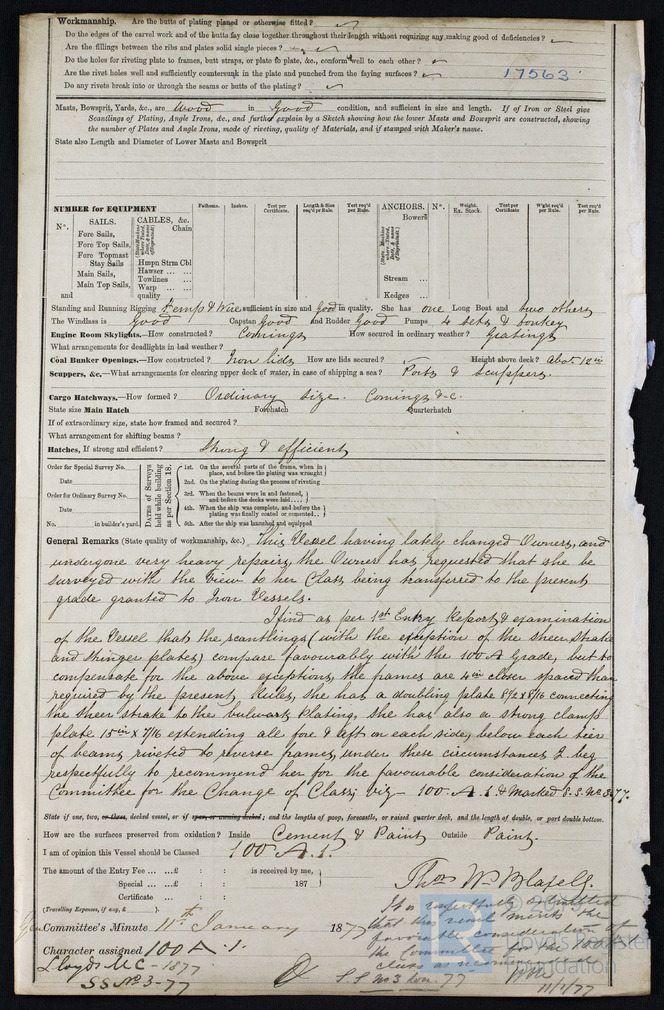 Workmanship. Are the butts of plating planed or otherwise fitted?
Do the edges of the carvel work and of the butts lay close together throughout their length without requiring any making good of deficiencies?
Are the fillings between the ribs and plates solid single pieces?
Do the holes for riveting plate to frames, butt straps, or plate to plate, &c., conform well to each other?
Are the rivet holes well and sufficiently countersunk in the plate and punched from the faying surfaces? 17563
Do any rivets break into or through the seams or butts of the plating?
Masts, Bowsprit, Yards, &c., are Wood in Good condition, and sufficient in size and length. If of Iron or Steel give
Scantlings of Plating, Angle Irons, &c., and further explain by a Sketch showing how the lower Masts and Bowsprit are constructed, showing
the number of Plates and Angle Irons, mode of riveting, quality of Materials, and if stamped with Maker's name.
State also Length and Diameter of Lower Masts and Bowsprit
NUMBER for EQUIPMENT Fathoms. Inches. Test per Certificate. Length & Size req'd pr Rule. Test req'd per Rule. ANCHORS. Nº. Weight. Ex. Stock. Test per Certificate W'ght req'd per Rule. Test req'd per Rule.
Nº. SAILS. CABLES, &c. Bowers
Fore Sails, Chain
Fore Top Sails,
Fore Topmast
Stay Sails Hmpn Strm Cbl
Main Sails, Hawser
Main Top Sails, Towlines Stream
and Warp
quality Kedges
Standing and Running Rigging Hemp & Wire sufficient in size and Good in quality. She has one Long Boat and two others
The Windlass is Good Capstan Good and Rudder Good Pumps 4 sets & donkey
Engine Room Skylights.—How constructed? Comings How secured in ordinary weather? Gratings
What arrangements for deadlights in bad weather?
Coal Bunker Openings.—How constructed? Iron lids How are lids secured? Height above deck? Abot 18 in
Scuppers, &c.—What arrangements for clearing upper deck of water, in case of shipping a sea? Ports & scuppers.
Cargo Hatchways.—How formed? Ordinary size. Comings &c.
State size Main Hatch Forehatch Quarterhatch
If of extraordinary size, state how framed and secured?
What arrangement for shifting beams?
Hatches, If strong and efficient? Strong & efficient
Order for Special Survey No. DATES of Surveys held while building as per Section 18. 1st. On the several parts of the frame, when in place, and before the plating was wrought
Date 2nd. On the plating during the process of riveting
Order for Ordinary Survey No. 3rd. When the beams were in and fastened, and before the decks were laid
Date 4th. When the ship was complete, and before the plating was finally coated or cemented
No. in builder's yard. 5th. After the ship was launched and equipped
General Remarks (State quality of workmanship, &c.) This Vessel having lately changed Owners, and
undergone very heavy repairs, the Owner has requested that she be
surveyed with the view to her Class being transferred to the present
grade granted to Iron Vessels.
I find as per 1st Entry Report & examination
of the Vessel that the scantlings (with the exception of the sheer Strake
and stringer plates) compare favourably with the 100 A Grade, but to
compensate for the above exceptions, the frames are 4 in closer spaced than
required by the present Rules, she has a doubling plate 8½ x 8/16 connecting
the sheer strake to the bulwark plating, she has also a strong clamp
plate 15 in x 7/16 extending all fore & aft on each side, below each tier
of beams, riveted to reverse frames, under these circumstances I beg
respectfully to recommend her for the favourable consideration of the
Committee for the Change of Class, viz 100 A.1. & Marked S.S. No 3-77.
State if one, two, or three, decked vessel, or if spar, or awning decked; and the lengths of poop, forecastle, or raised quarter deck, and the length of double, or part double bottom.
How are the surfaces preserved from oxidation? Inside Cement & Paint Outside Paint.
I am of opinion this Vessel should be Classed 100 A.1.
The amount of the Entry Fee ... £ : : is received by me,
Special ... £ : : 187
Certificate ... : :
(Travelling Expenses, if any, £ ).
Thos Wm Blaxell.
It is respectfully submitted
that this vessel merits the
favorable consideration of
the Committee for the 100A1
class as recommended
Committee's Minute 11th January 1877
Character assigned 100 A.1.
Lloyds MC - 1877
SS No 3-77
S.S No 3 Lon. 77
11/1/77
Lloyd's Register
Foundation